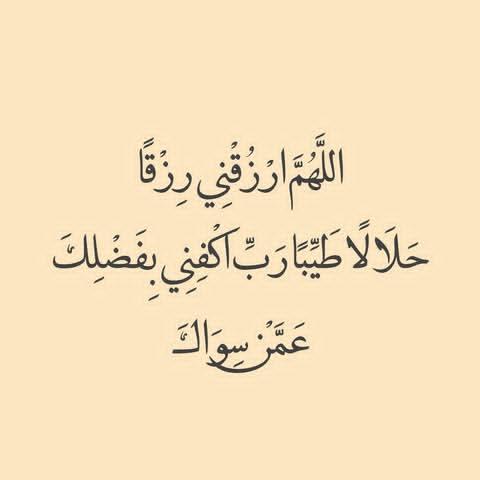 اللَّهُمَّ ارْزُقْنِي رِزْقًا
حَلَالًا طَيِّبًا رَبِّ اكْفِنِي بِفَضْلِكَ
عَمَّنْ سِوَاكَ